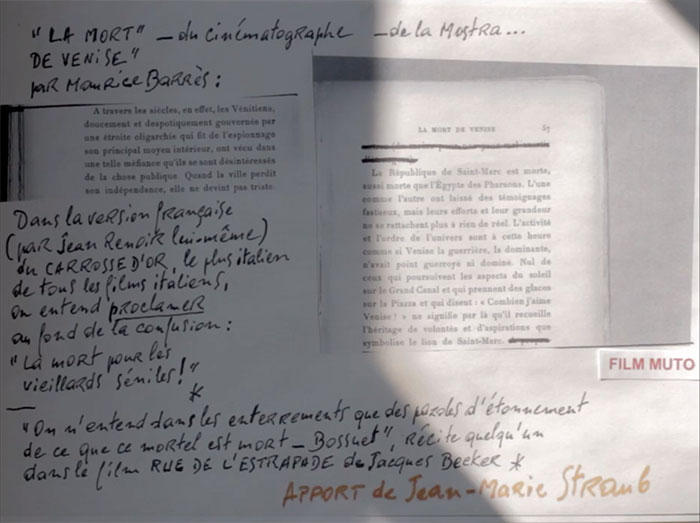 "LA MORT" – du cinématographe – de la Mostra...
DE VENISE"
par Maurice Barrès :
A travers les siècles, en effet, les Vénitiens,
doucement et despotiquement gouvernés par
une étroite oligarchie qui fit de l'espionnage
son principal moyen intérieur, ont vécu dans
une telle méfiance qu'ils se sont désintéressés
de la chose publique. Quand la ville perdit
son indépendance, elle ne devint pas triste.
LA MORT DE VENISE 57
La République de Saint-Marc est morte,
aussi morte que l'Égypte des Pharaons. L'une
comme l'autre ont laissé des témoignages
fastueux, mais leurs efforts et leur grandeur
ne se rattachent plus à rien de réel. L'activité
et l'ordre de l'univers sont à cette heure
comme si Venise la guerrière, la dominante,
n'avait point guerroyé ni dominé. Nul de
ceux qui poursuivent les aspects du soleil
sur le Grand Canal et qui prennent des glaces
sur la Piazza et qui disent : « Combien j'aime
Venise ! » ne signifie par là qu'il recueille
l'héritage de volontés et d'aspirations que
symbolise le lion de Saint-Marc.
Dans la version française
(par Jean Renoir lui-même)
du CARROSSE D'OR, le plus italien
de tous les films italiens,
on entend proclamer
au fond de la confusion :
"La mort pour les
vieillards séniles !"
*
FILM MUTO
"On n'entend dans les enterrements que des paroles d'étonnement
de ce que ce mortel est mort – Bossuet", récite quelqu'un
dans le film RUE DE L'ESTRAPADE de Jacques Becker *
APPORT de Jean-Marie Straub